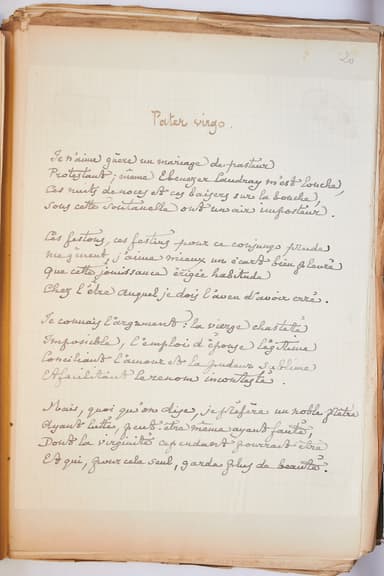 20
Pater virgo.
Je n'aime guère un mariage de pasteur
Protestant; même Ebenezer Landray m'est louche,
Ces nuits de noces et ces baisers sur la bouche,
Sous cette soutanelle ont un air imposteur.
Ces festons, ces festins pour ce conjungo prude
me gênent, j'aime mieux un écart bien pleuré
Que cette jouissance érigée habitude
Chez l'être auquel je dois l'aveu d'avoir erré.
Je connais l'argument: la vierge chasteté
Impossible, l'emploi d'épouse légitime
Conciliant l'amour et la pudeur sublime
Et facilitant le renom incontesté.
Mais, quoi qu'on dise, je préfère un noble prêtre
Ayant lutté, peut-être même ayant fauté,
Dont la virginité cependant pourrait être
Et qui, pour cela seul, garde plus de beauté.